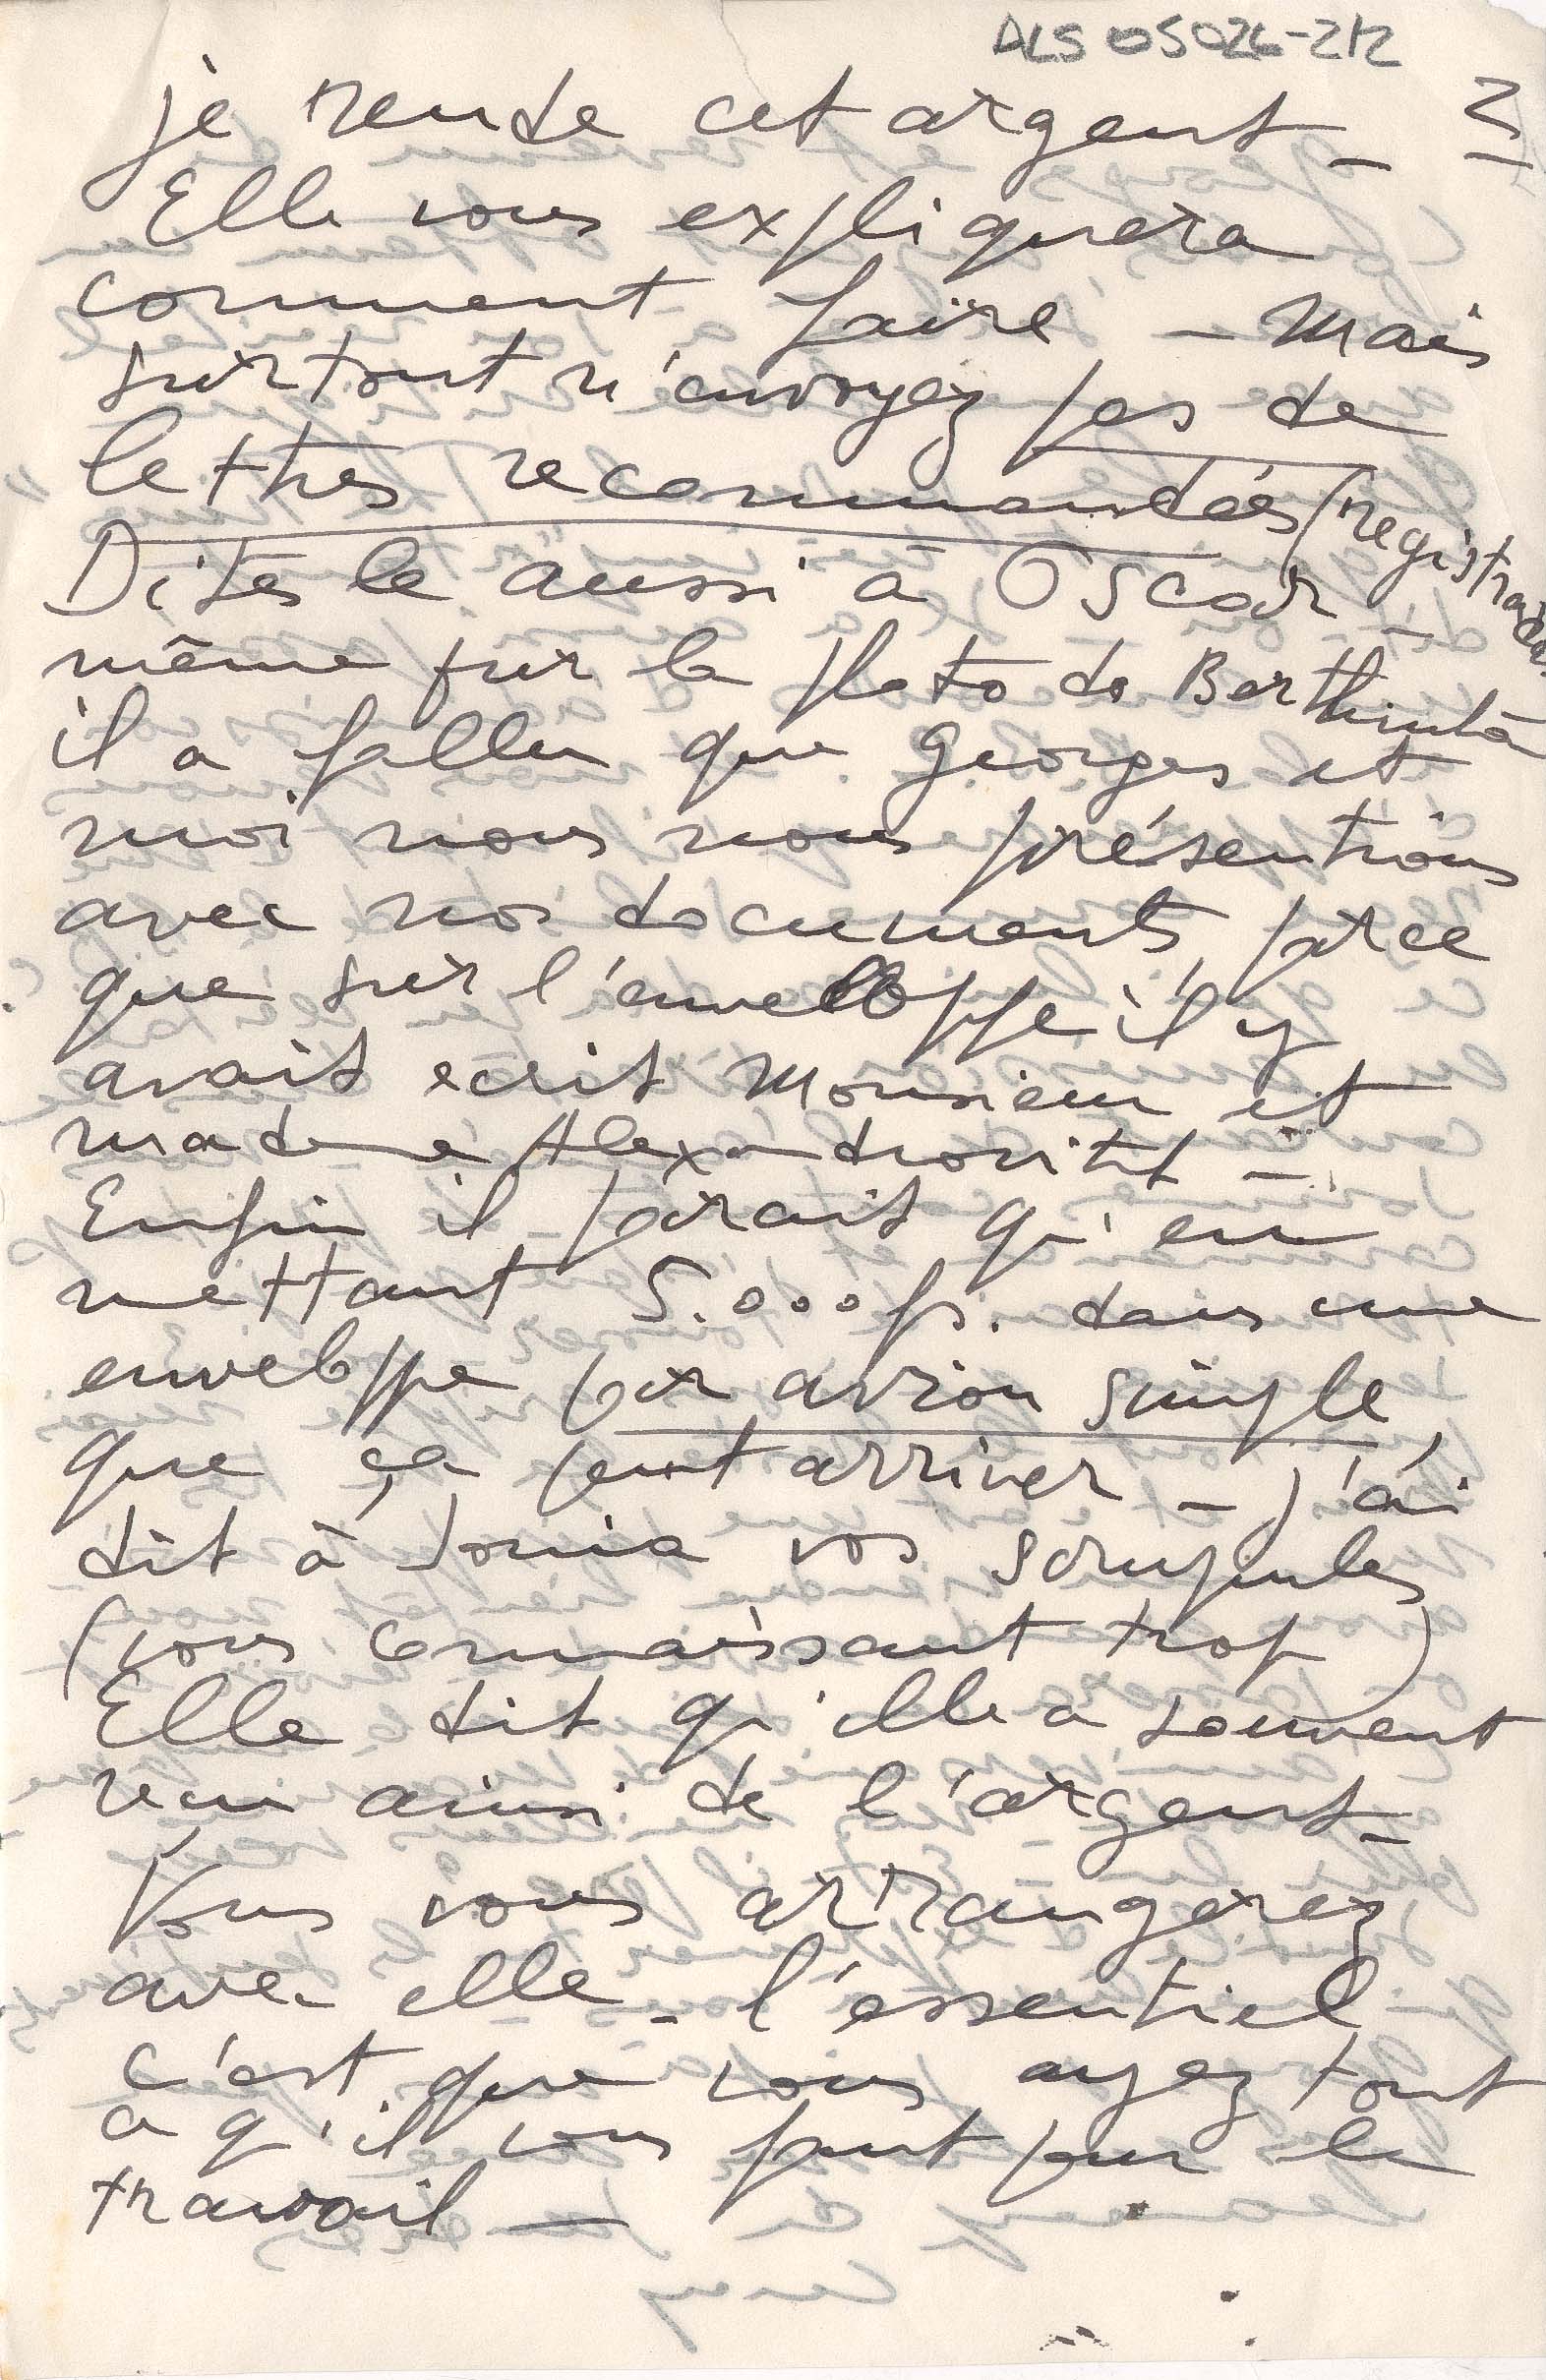 ALS 05026-2/2
je rende cet argent_ 2
Elle vous expliquera
comment faire _ mais
surtout n'envoyez pas de
lettres recommandées (registradas
Dites le aussi à Oscar _
même pur la photo de Berthinha
il a fallu que Georges et
moi nous nous présentions
avec nos documents, parce
que sur l'enveloppe il y
avait ecrit Monsieur et
madame Alexandrovitch _
Enfin il parait qu'en
mettant 5.000 fs. dans une
enveloppe par avion simple,
que ça peut arriver _ J'ai
dit à Sonia vos scrupules
(vous connaissant trop)
Elle dit qu'elle a souvent
recu ainsi de l'argent_
Vous vous arrangerez
avec elle _ l'éssentiel
c'est que vous ayez tout
ce qu'il vous faut pour le
travail _